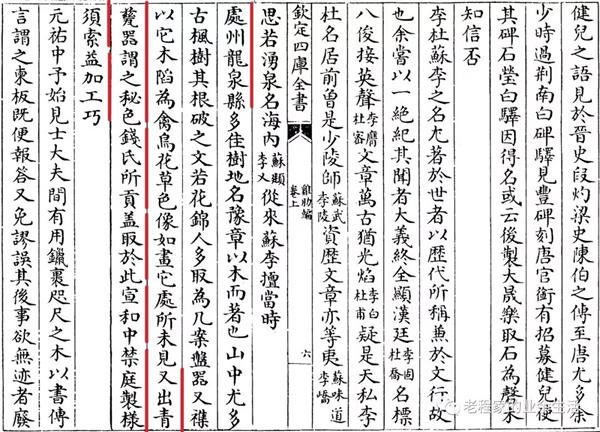 健兒之語見於晉史段灼梁史陳伯之傳至唐尤多余
少時過荆南白碑驛見豐碑刻唐官銜有招募健兒使
其碑石瑩白驛因得名或云後製大晟樂取石為磬未
知信否
李杜蘇李之名尤著於世者以歷代所稱兼於文行故
也余嘗以一絶紀其聞者大義終全顯漢廷李固杜喬名標
八俊接英聲李膺杜密文章萬古猶光焰李白杜甫疑是天私李
杜名居前曾是少陵師蘇武李陵資歷文章亦等夷蘇味道李嶠
欽定四庫全書
雞肋編
卷上
六
思若湧泉名海内蘇頲李乂從來蘇李擅當時
處州龍泉縣多佳樹地名豫章以木而著也山中尤多
古楓樹其根破之文若花錦人多取為几案盤器又雜
以它木陷為禽鳥花草色像如畫它處所未見又出青
甆器謂之秘色錢氏所貢盖取於此宣和中禁庭製様
須索益加工巧
元祐中予始見士大夫間有用鑞裹咫尺之木以書傳
言謂之柬板既便報答又免謬誤其後事欲無迹者廢
老程家的业余生活